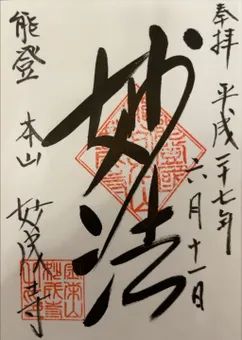 奉拝 平成二十七年
六月十一日
妙法
能登 本山 妙成寺